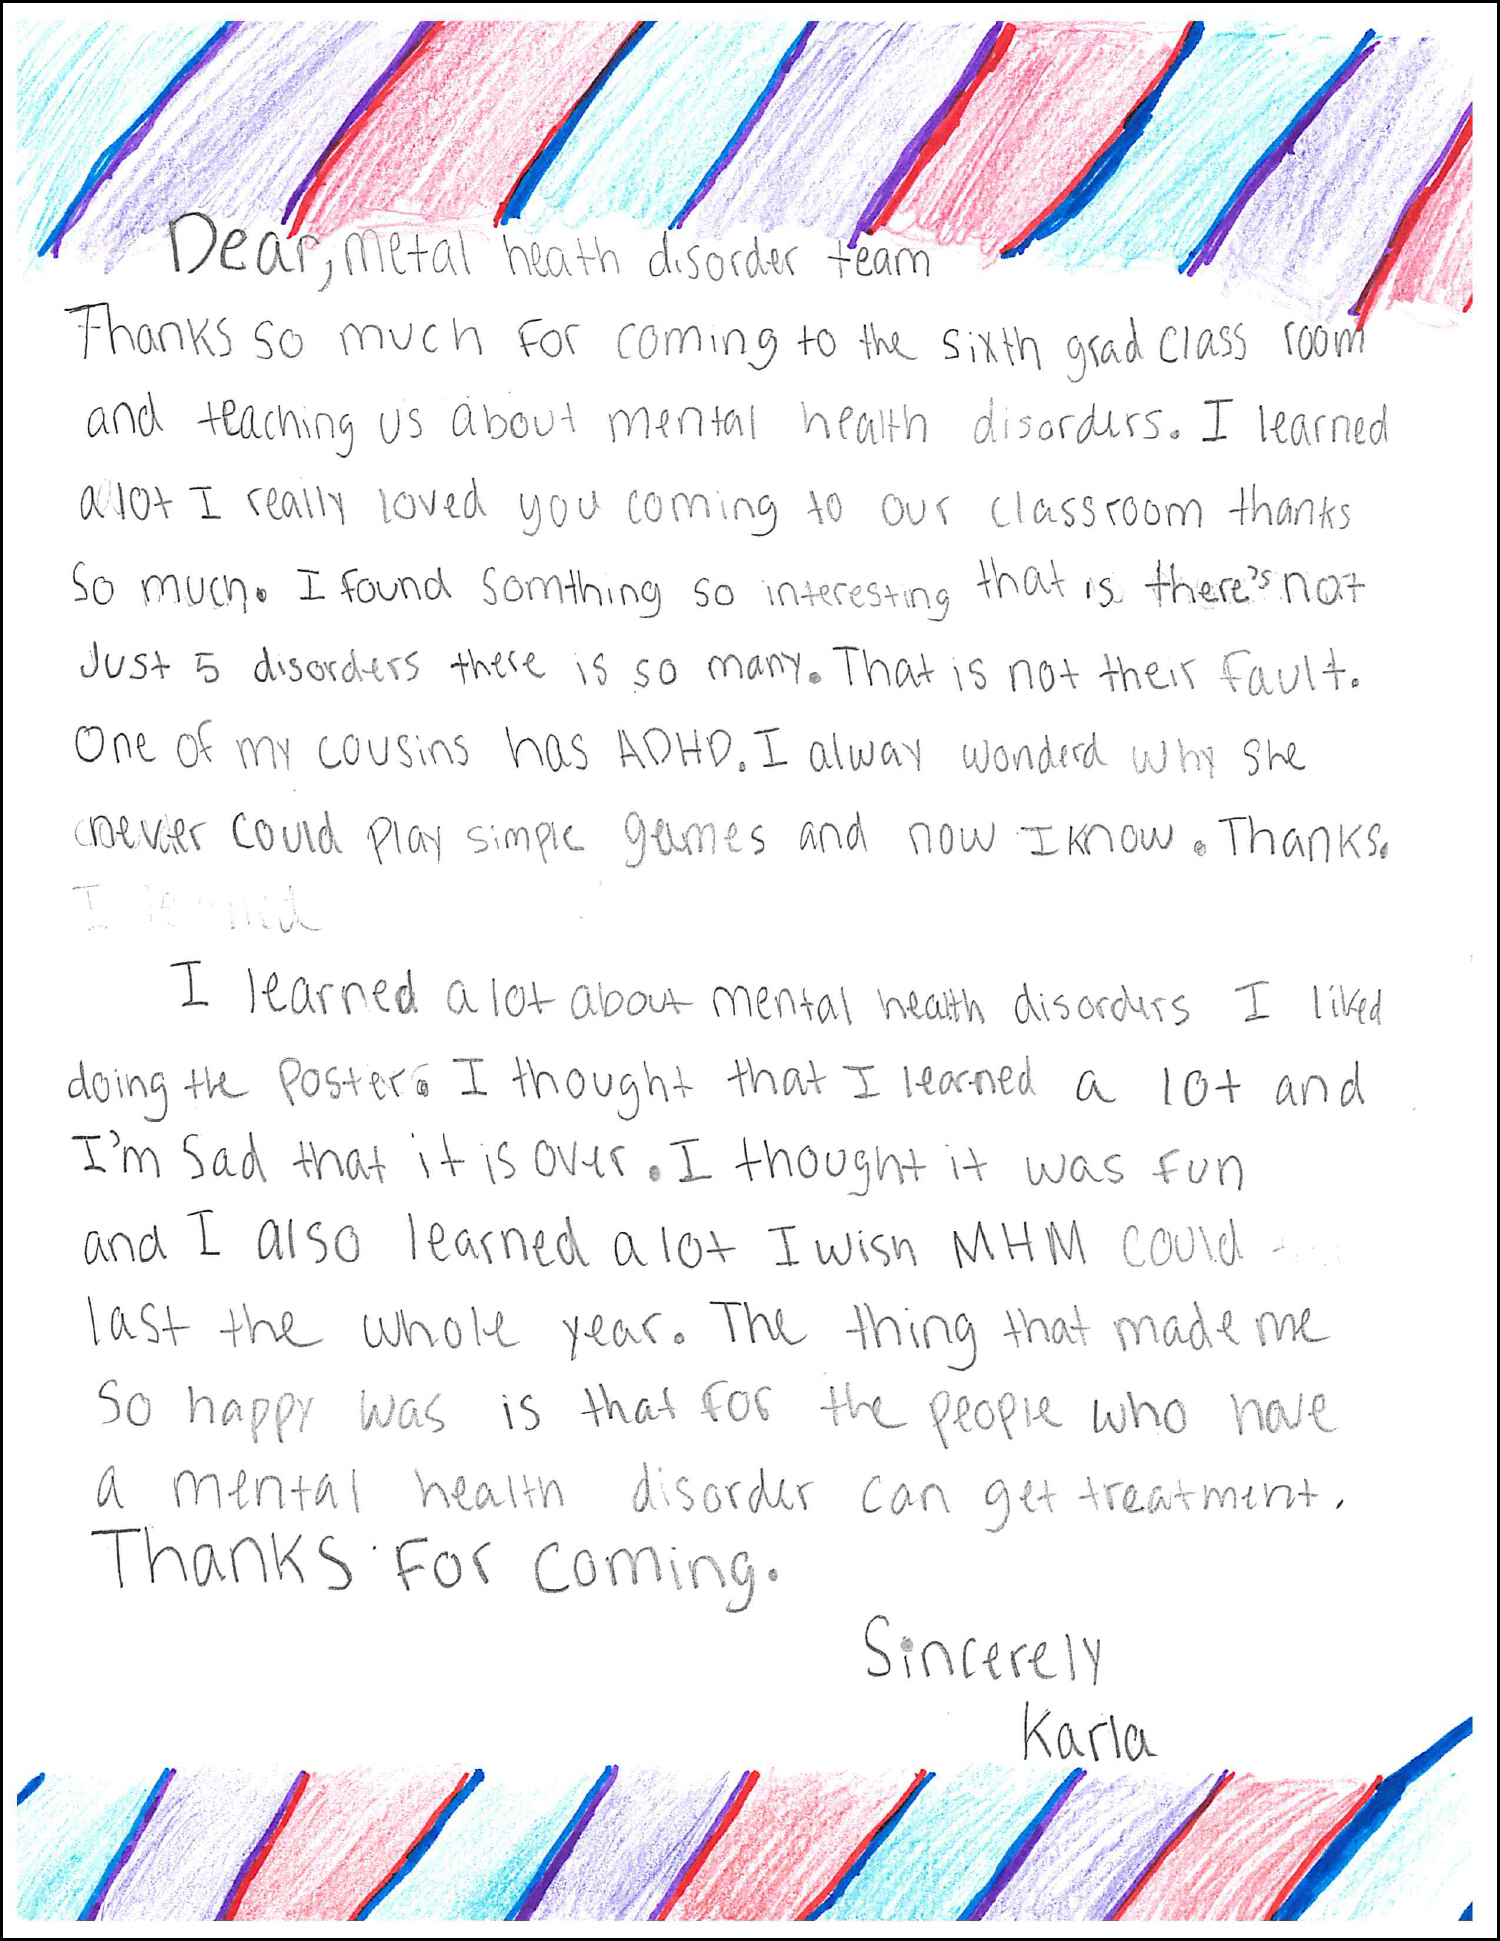 Dear, metal heath disorder team
Thanks so much for coming to the sixth grad class room
and teaching us about mental health disorders. I learned
a lot I really loved you coming to our classroom thanks
so much. I found somthing so interesting that is there's not
Just 5 disorders there is so many. That is not their fault.
One of my cousins has ADHD. I alway wonderd why she
never could play simple games and now I know. Thanks.
I learned
I learned a lot about mental health disorders I liked
doing the Poster. I thought that I learned a lot and
I'm Sad that it is over. I thought it was fun
and I also learned a lot I wish MHM could
last the whole year. The thing that made me
So happy was is that for the people who have
a mental health disorder can get treatment.
Thanks For coming.
Sincerely
Karla